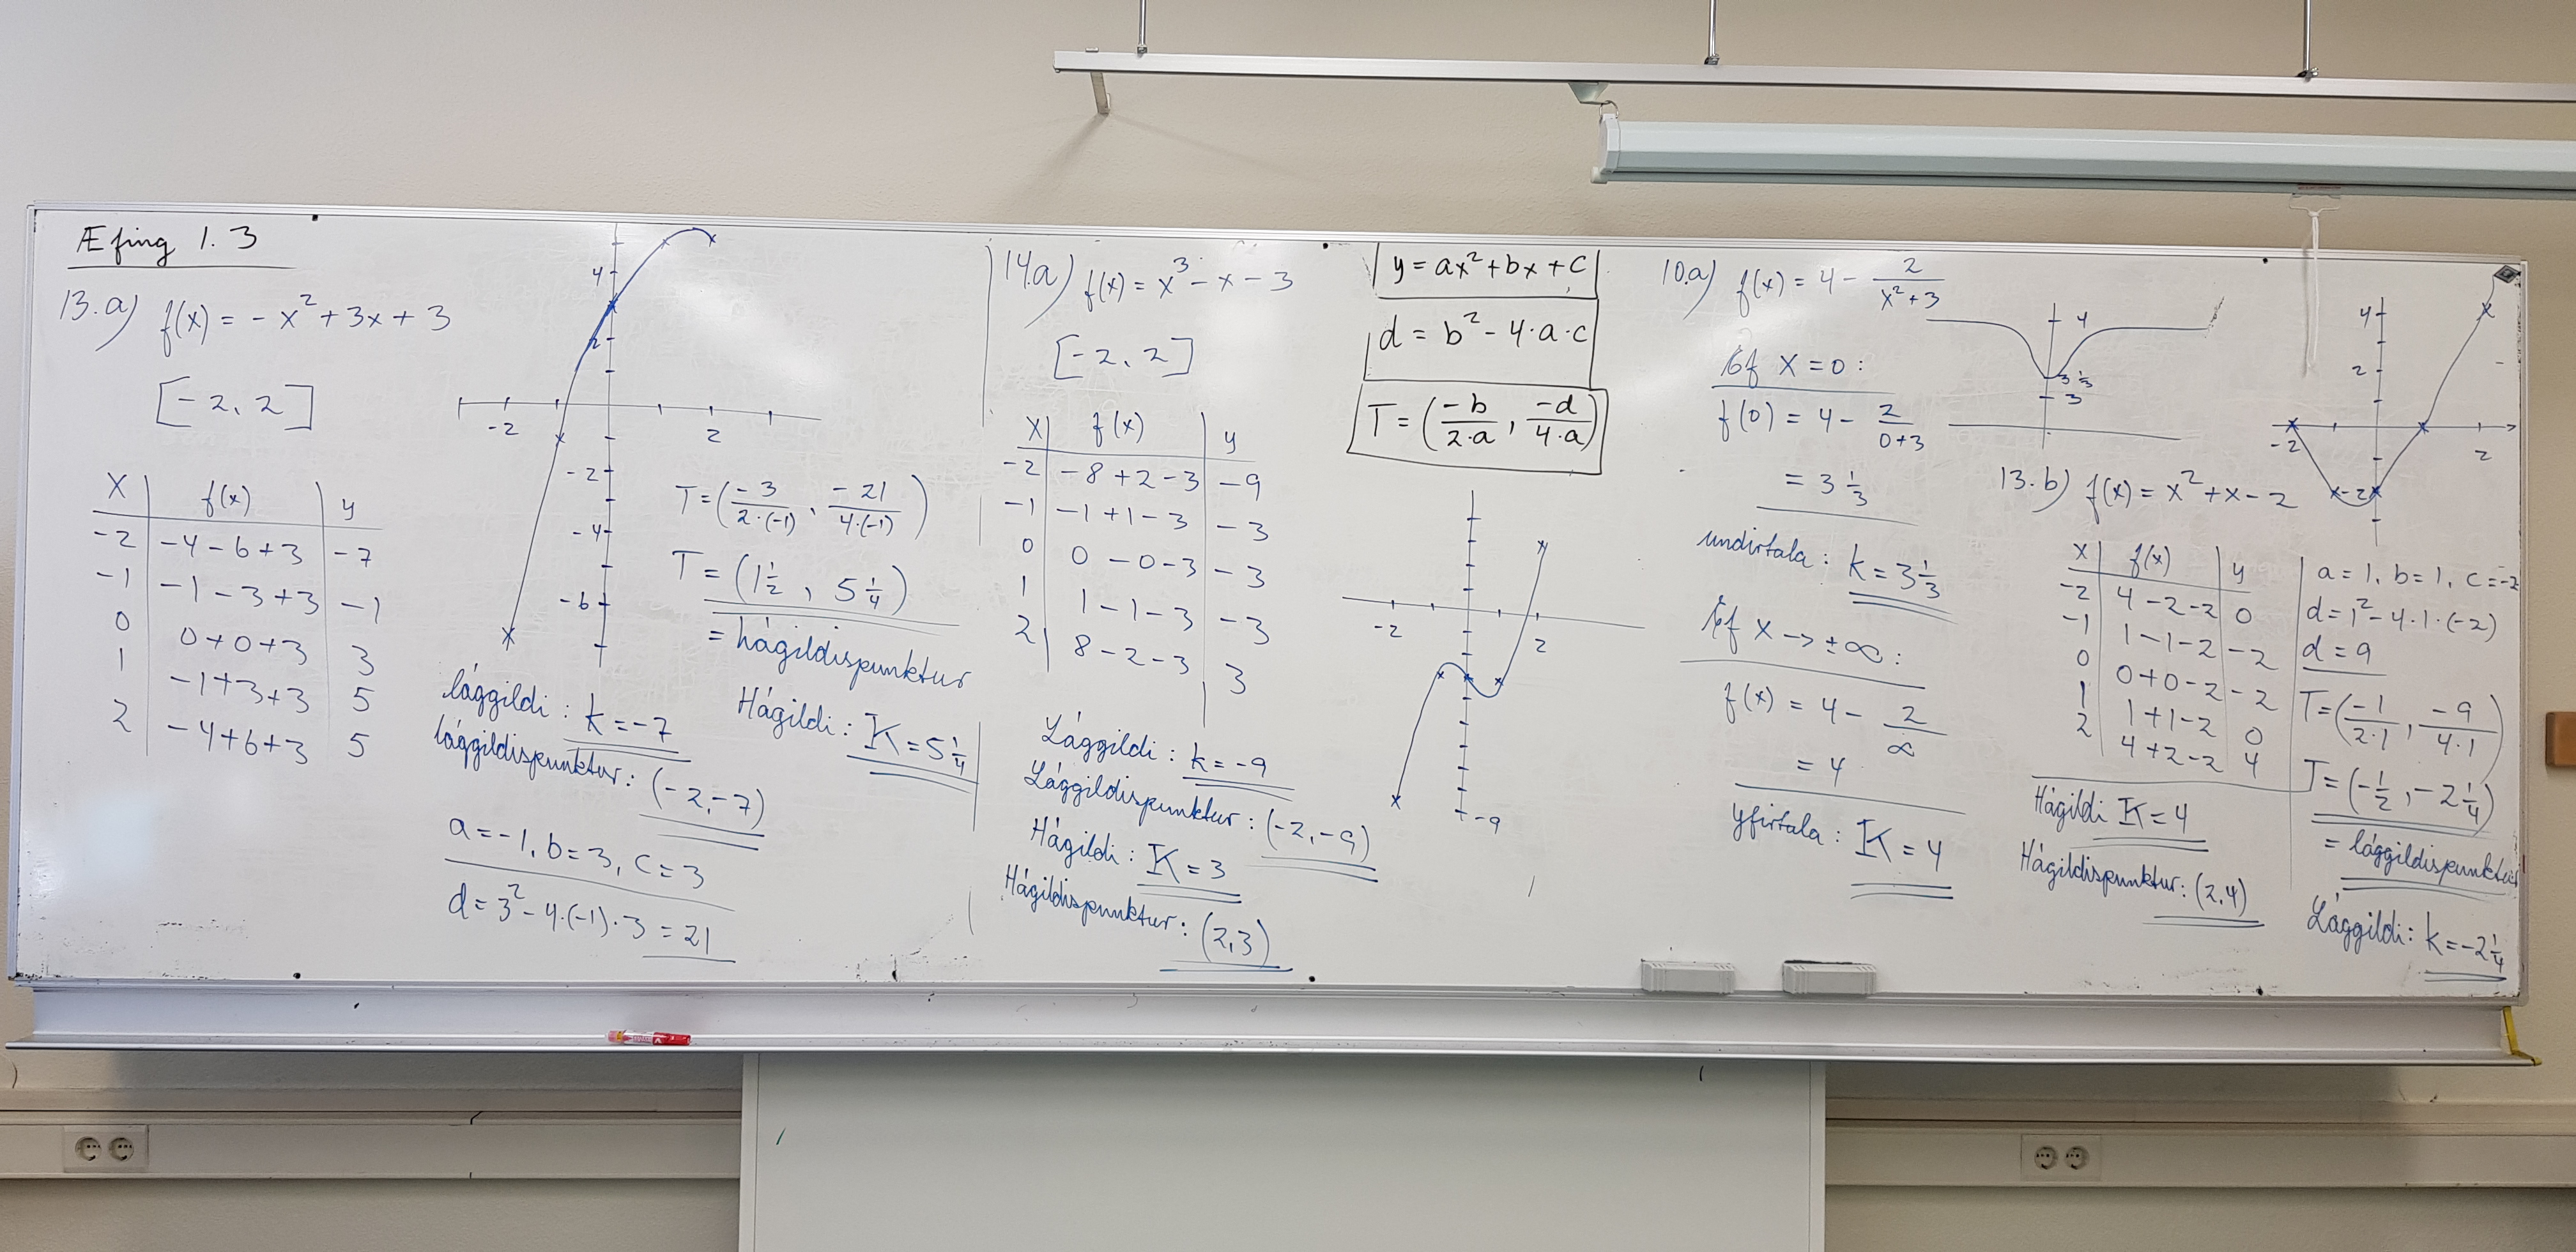 Æfing 1.3
13.a) f(x) = -x² + 3x + 3
[-2, 2]
x | f(x) | y
-2 | -4 - 6 + 3 | -7
-1 | -1 - 3 + 3 | -1
0 | 0 + 0 + 3 | 3
1 | -1 + 3 + 3 | 5
2 | -4 + 6 + 3 | 5
4
2
-2 2
-2
-4
-6
T = (-3/2·(-1), -21/4·(-1))
T = (1 1/2, 5 1/4)
= hágildispunktur
lággildi: k = -7
lággildispunktur: (-2, -7)
Hágildi: K = 5 1/4
a = -1, b = 3, c = 3
d = 3² - 4·(-1)·3 = 21
14.a) f(x) = x³ - x - 3
[-2, 2]
x | f(x) | y
-2 | -8 + 2 - 3 | -9
-1 | -1 + 1 - 3 | -3
0 | 0 - 0 - 3 | -3
1 | 1 - 1 - 3 | -3
2 | 8 - 2 - 3 | 3
Lággildi: k = -9
Lággildispunktur: (-2, -9)
Hágildi: K = 3
Hágildispunktur: (2, 3)
y = ax² + bx + c
d = b² - 4·a·c
T = (-b/2·a, -d/4·a)
-2 2
-9
10.a) f(x) = 4 - 2/x²+3
Ef x = 0:
f(0) = 4 - 2/0+3
= 3 1/3
undirtala: k = 3 1/3
Ef x → ±∞:
f(x) = 4 - 2/∞
= 4
yfirtala: K = 4
4
3 1/3
3
4
2
-2 2
-2
13.b) f(x) = x² + x - 2
x | f(x) | y
-2 | 4 - 2 - 2 | 0
-1 | 1 - 1 - 2 | -2
0 | 0 + 0 - 2 | -2
1 | 1 + 1 - 2 | 0
2 | 4 + 2 - 2 | 4
Hágildi K = 4
Hágildispunktur: (2, 4)
a = 1, b = 1, c = -2
d = 1² - 4·1·(-2)
d = 9
T = (-1/2·1, -9/4·1)
T = (-1/2, -2 1/4)
= lággildispunktur
Lággildi: k = -2 1/4